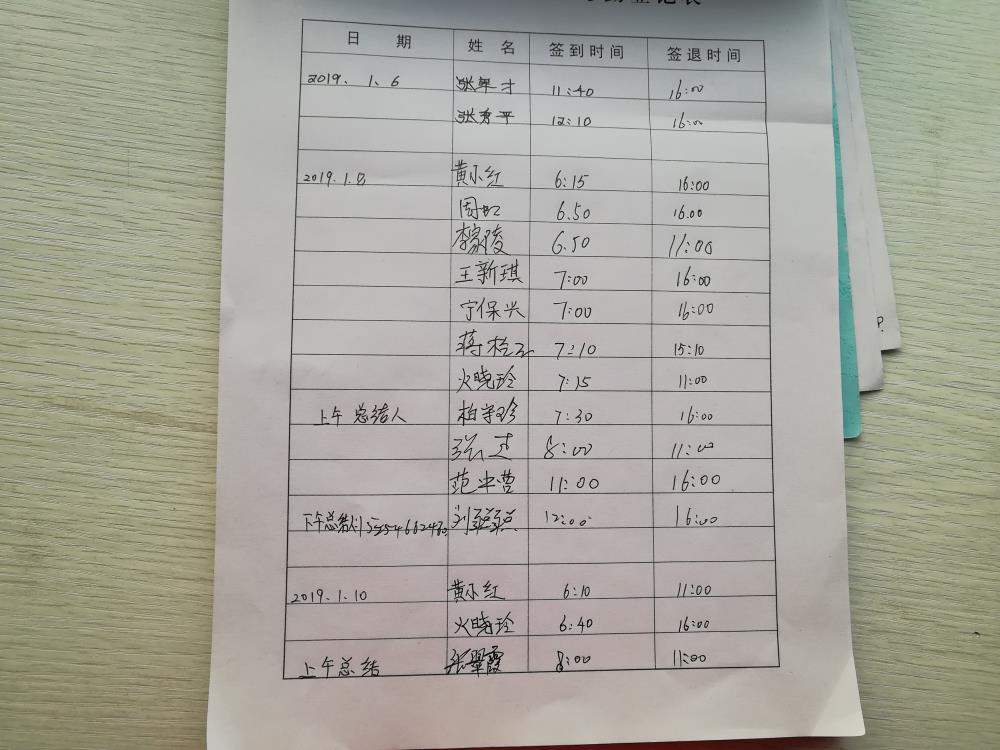 登记表
日 期 姓 名 签到时间 签退时间
2019. 1. 6 张 才 11:40 16:00
张秀平 12:10 16:00
2019.1.8 黄小红 6:15 16:00
周虹 6.50 16.00
李家陵 6.50 11:00
王新琪 7:00 16:00
宁保兴 7:00 16:00
蒋 7:10 15:10
火晓玲 7:15 11:00
上午 总结人 柏学珍 7:30 16:00
张 8:00 11:00
范中曹 11:00 16:00
下午总结人 刘 12:00 16:00
2019.1.10 黄小红 6:10 11:00
火晓玲 6:40 16:00
上午总结 张翠霞 8:00 11:00
P.